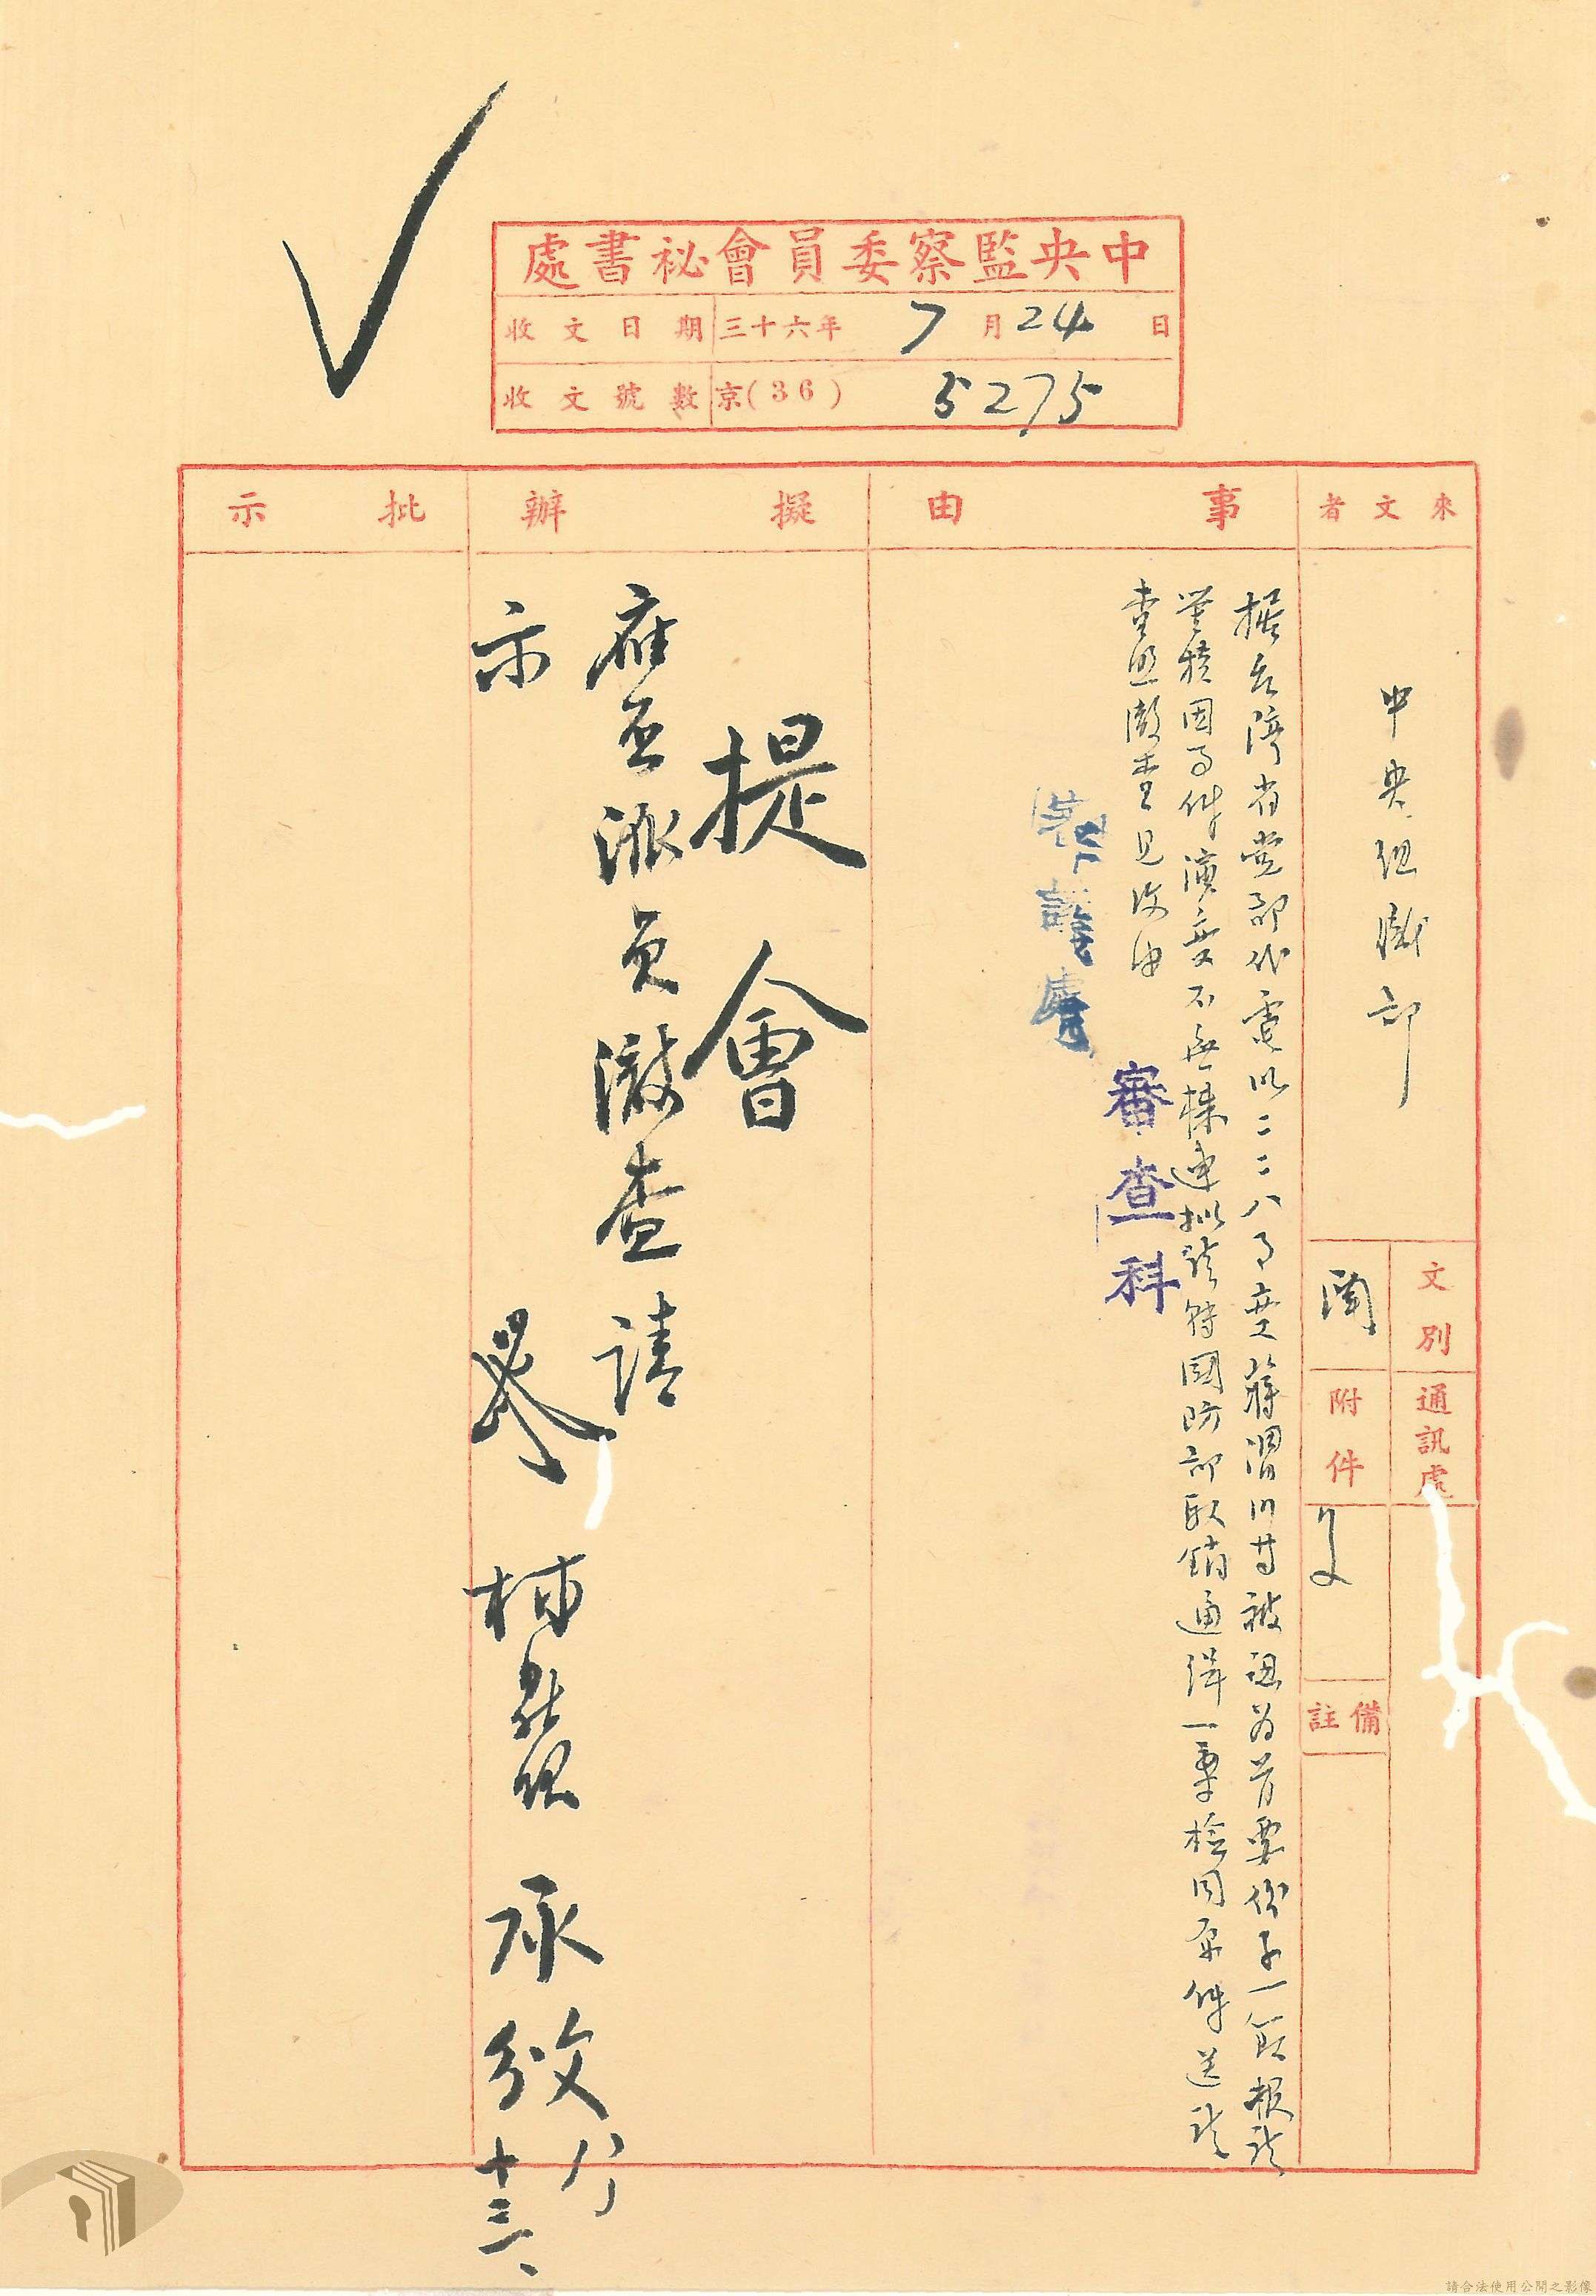 中央監察委員會祕書處
收文日期 三十六年 7月24日
收文號數 京(36) 5275
來文者
中央組織部
文別
通訊處
附件
備註
事由
據台灣省党部代電以二二八事變蔣渭川等被認為首要份子一節報請
因事件演變不無株連拟請轉國防部取銷通緝一案檢同原件送請
查照澈查見復由
審查科
擬辦
提會
應否派員澈查請
示
八月
十三、
批示
請合法使用公開之影像